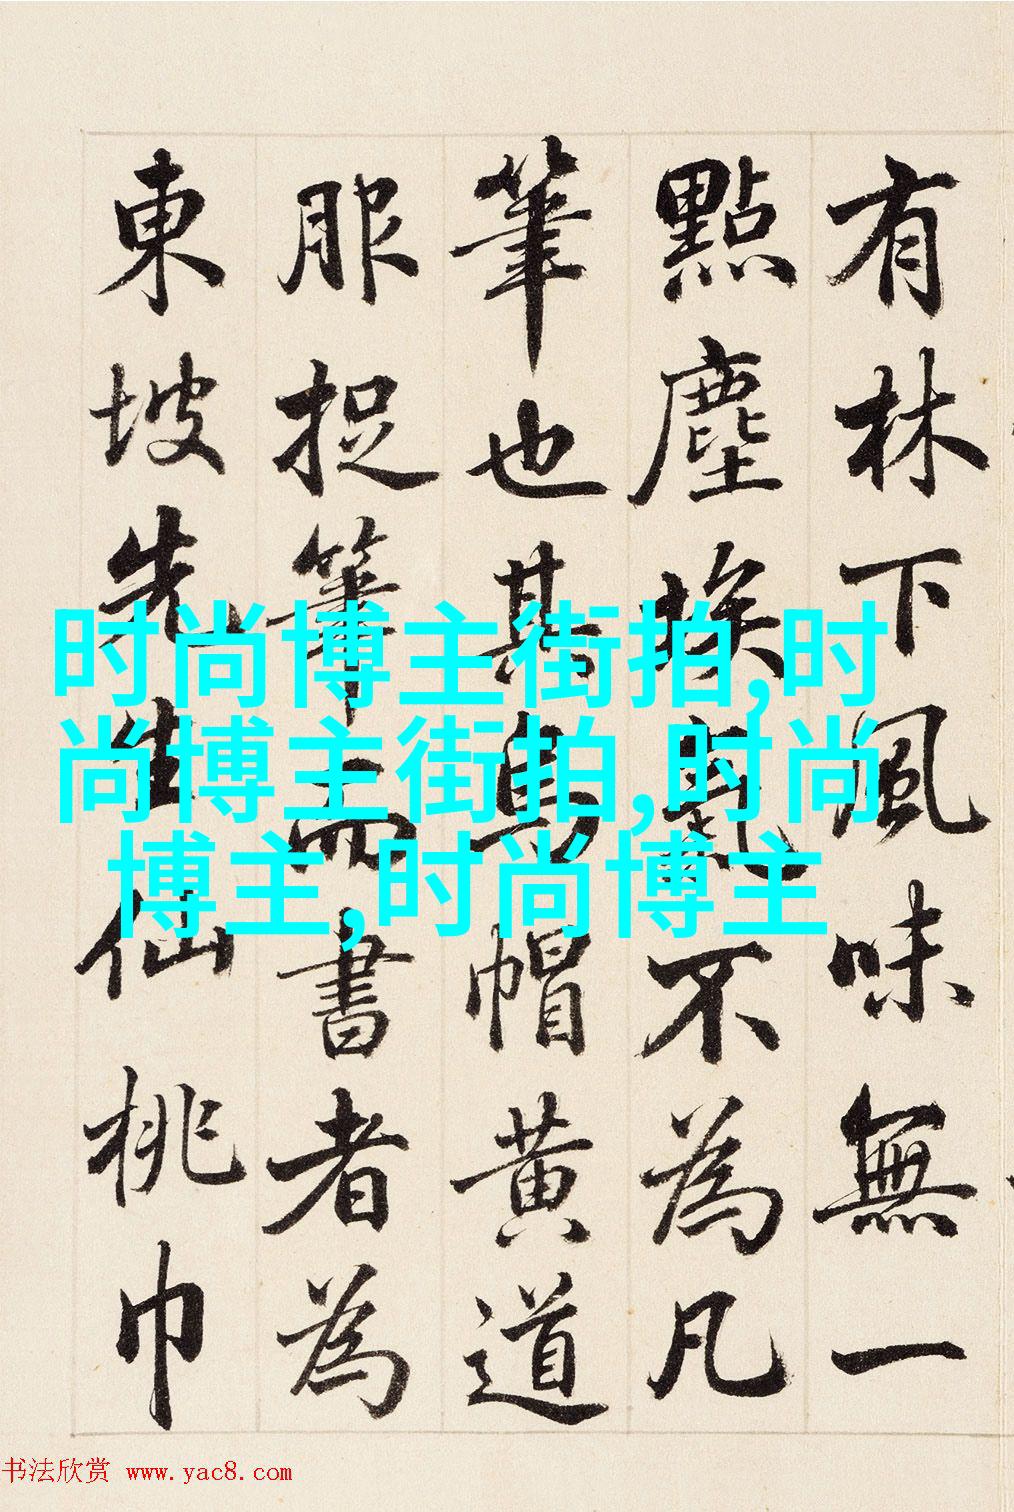 有林下風味無一
點塵埃氣不為凡
筆也其烏帽黃道
服捉筆而書者為
東坡先生仙桃巾
时尚博主街拍,时
尚博主街拍,时尚
博主,时尚博主
书法欣赏 www.yac8.com